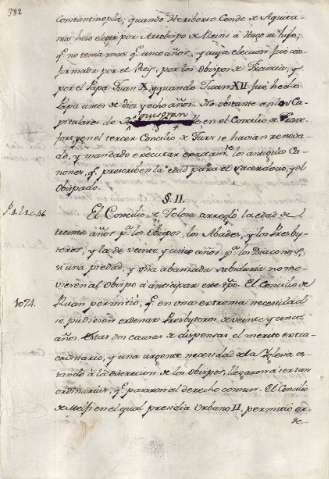 392
Constantinopla, quando Heriberto Conde de Aquita-
nia hizo elegir por Arzobispo de Reims á Hugo su hijo,
qe. no tenia mas qe. cinco años, y cuya eleccion fué con-
firmada por el Rey, por los Obispos de Francia, y
por el Papa Juan X, y quando Juan XII fué hecho
Papa antes de diez y ocho años. No obstante en los Ca-
pitulares de en el Concilio de Franc-
fort, y en el tercer Concilio de Turs se havia renova-
do, y mandado executar los antiguos Ca-
nones, qe. prescriben la edad para el sacerdocio, y el
Obispado.
§. II.
El Concilio de Tolosa arregló la edad de
treinta años pa. los Obispos, los Abades, y los Presby-
teros, y la de veinte y cinco años pa. los Diaconos,
si una piedad, y una abanzada sabiduria no mo-
vieren al Obispo á anticipar este tpo. El Concilio de
1074. Ruan permitió, qe. en una extrema necesidad
se pudiesen ordenar Presbyteros de veinte y cinco
años. Estas dos causas de dispensar el merito extra-
ordinario, y una urgente necesidad de la Yglesia es-
tando á la discrecion de los Obispos, llegaron á ser tan
ordinarias, qe. pararon al derecho comun. El Concilio
de Melfi en el qual presidia Urbano II, permitió or-
de-